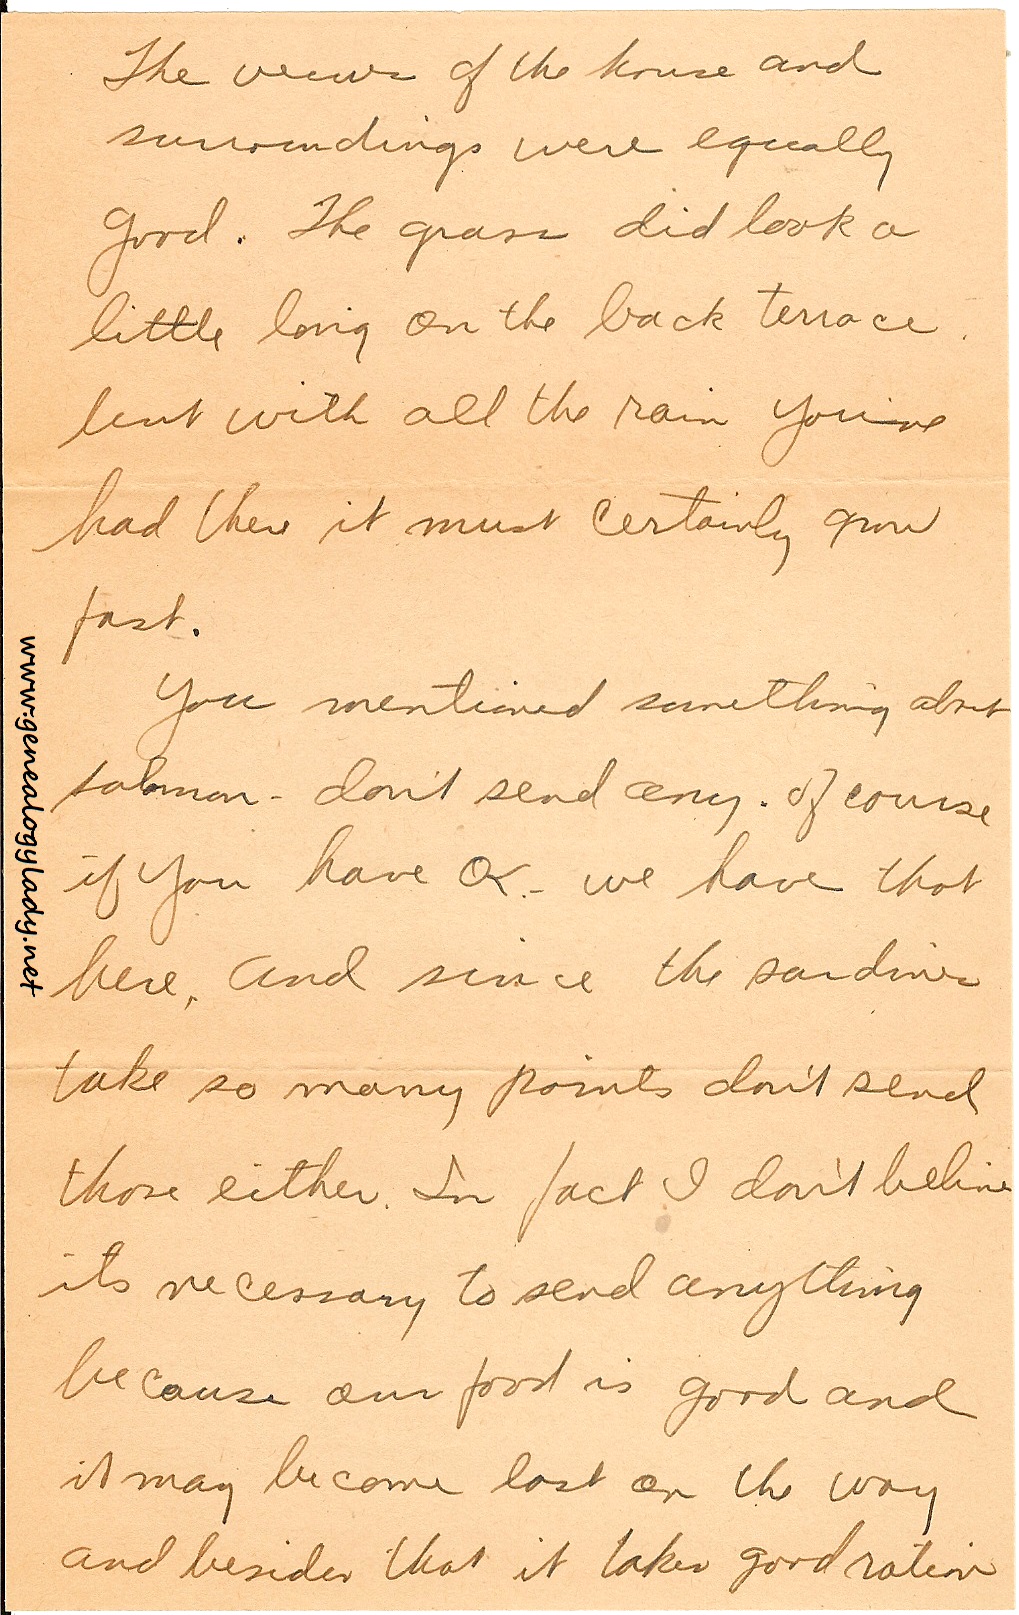 The views of the house and
surroundings were equally
good. The grass did look a
little long on the back terrace
but with all the rain you've
had there it must certainly grow
fast.
You mentioned something about
salmon - don't send any. Of course
if you have O.K. - we have that
here. And since the sardines
take so many points don't send
those either. In fact I don't believe
it's necessary to send anything
because our food is good and
it may become lost on the way
and besides that it takes good ration
www.genealogylady.net